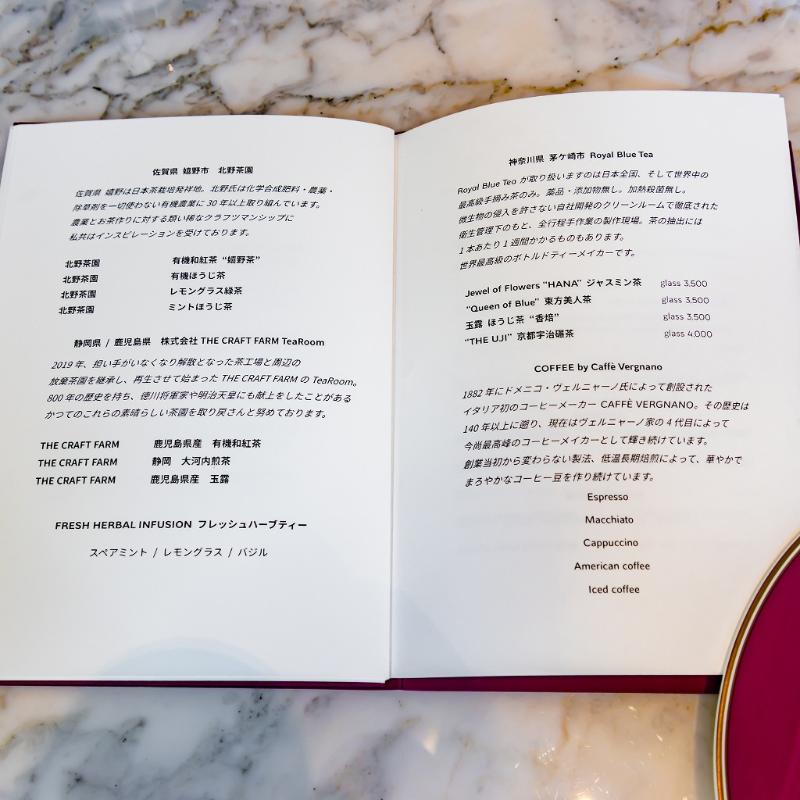 佐賀県 嬉野市 北野茶園
佐賀県 嬉野は日本茶栽培発祥地。北野氏は化学合成肥料・農薬・
除草剤を一切使わない有機農業に 30 年以上取り組んでいます。
農業とお茶作りに対する類い稀なクラフツマンシップに
私共はインスピレーションを受けております。
北野茶園 有機和紅茶 “嬉野茶”
北野茶園 有機ほうじ茶
北野茶園 レモングラス緑茶
北野茶園 ミントほうじ茶
静岡県 / 鹿児島県 株式会社 THE CRAFT FARM TeaRoom
2019 年、担い手がいなくなり解散となった茶工場と周辺の
放棄茶園を継承し、再生させて始まった THE CRAFT FARM の TeaRoom。
800 年の歴史を持ち、徳川将軍家や明治天皇にも献上をしたことがある
かつてのこれらの素晴らしい茶園を取り戻さんと努めております。
THE CRAFT FARM 鹿児島県産 有機和紅茶
THE CRAFT FARM 静岡 大河内煎茶
THE CRAFT FARM 鹿児島県産 玉露
FRESH HERBAL INFUSION フレッシュハーブティー
スペアミント / レモングラス / バジル
神奈川県 茅ケ崎市 Royal Blue Tea
Royal Blue Tea が取り扱いますのは日本全国、そして世界中の
最高級手摘み茶のみ。薬品・添加物無し。加熱殺菌無し。
微生物の侵入を許さない自社開発のクリーンルームで徹底された
衛生管理下のもと、全行程手作業の製作現場。茶の抽出には
1 本あたり 1 週間かかるものもあります。
世界最高級のボトルドティーメイカーです。
Jewel of Flowers “HANA” ジャスミン茶 glass 3,500
“Queen of Blue” 東方美人茶 glass 3,500
玉露 ほうじ茶 “香焙” glass 3,500
“THE UJI” 京都宇治碾茶 glass 4,000
COFFEE by Caffè Vergnano
1882 年にドメニコ・ヴェルニャーノ氏によって創設された
イタリア初のコーヒーメーカー CAFFÈ VERGNANO。その歴史は
140 年以上に遡り、現在はヴェルニャーノ家の 4 代目によって
今尚最高峰のコーヒーメイカーとして輝き続けています。
創業当初から変わらない製法、低温長期焙煎によって、華やかで
まろやかなコーヒー豆を作り続けています。
Espresso
Macchiato
Cappuccino
American coffee
Iced coffee